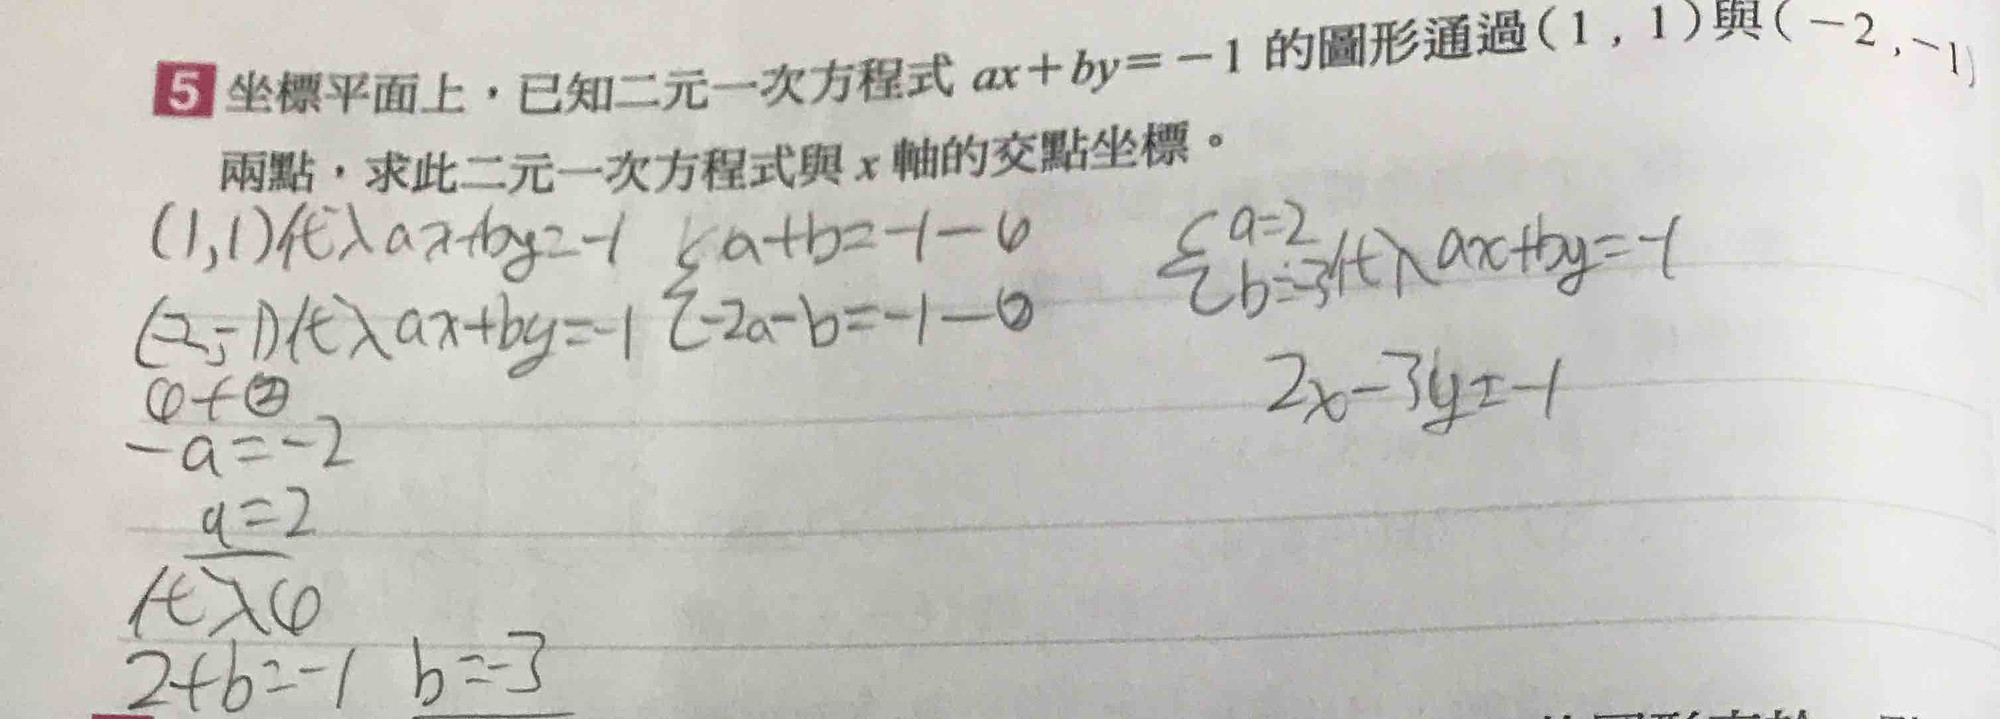 5 坐標平面上，已知二元一次方程式 ax+by=-1 的圖形通過(1,1)與(-2,-1)
兩點，求此二元一次方程式與 x 軸的交點坐標。
(1,1)代入ax+by=-1
(-2,-1)代入ax+by=-1
{a+b=-1-①
{-2a-b=-1-②
①+②
-a=-2
a=2
代入①
2+b=-1 b=-3
{a=2
{b=-3代入ax+by=-1
2x-3y=-1